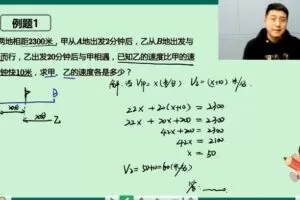 例题1
两地相距2300米，甲从A地出发2分钟后，乙从B地出发与
而行，乙出发20分钟后与甲相遇，已知乙的速度比甲的速
钟快10米，求甲、乙的速度各是多少？
解：设 V甲 = x (米/分) V乙 = (x+10) 米/分
22x + 20(x+10) = 2300
22x + 20x + 200 = 2300
42x + 200 = 2300
42x = 2100
x = 50
V乙 = 50+10 = 60 (米/分)
答：
B
乙